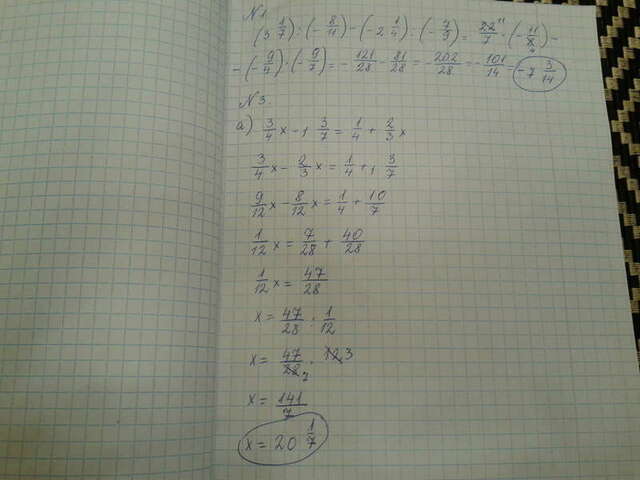 N1.
(3 1/7) · (- 8/11) - (- 2 1/4) · (- 7/9) = 22/7 · (- 11/8) -
- (- 9/4) · (- 9/7) = - 121/28 - 81/28 = - 202/28 = - 101/14 = - 7 3/14
N3.
a) 3/4 x - 1 3/7 = 1/4 + 2/3 x
3/4 x - 2/3 x = 1/4 + 1 3/7
9/12 x - 8/12 x = 1/4 + 10/7
1/12 x = 7/28 + 40/28
1/12 x = 47/28
x = 47/28 : 1/12
x = 47/28 · 12 3
x = 141/7
x = 20 1/7